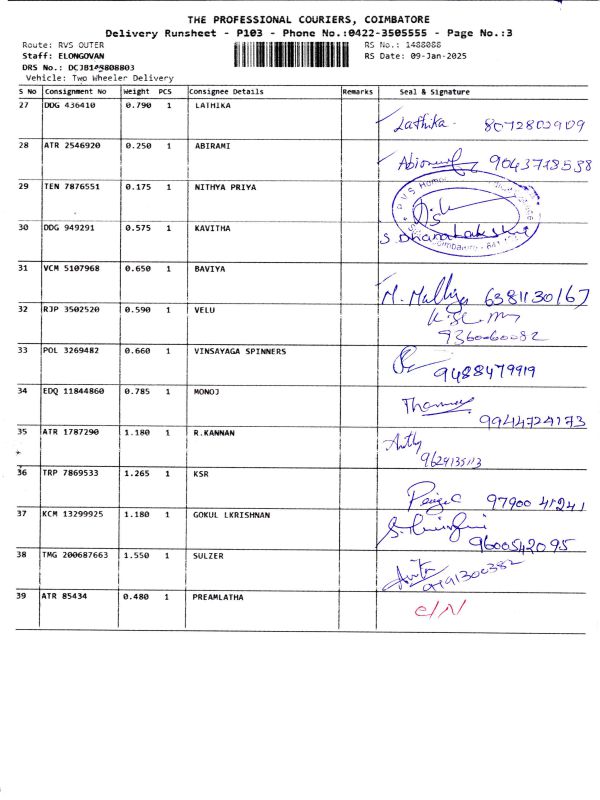 THE PROFESSIONAL COURIERS, COIMBATORE
Delivery Runsheet - P103 - Phone No.:0422-3505555 - Page No.:3
Route: RVS OUTER RS No.: 1488088
Staff: ELONGOVAN RS Date: 09-Jan-2025
DRS No.:
Vehicle: Two Wheeler Delivery
S No Consignment No Weight PCS Consignee Details Remarks Seal & Signature
27 DDG 436410 0.790 1 LATHIKA
Lathika - 8072802909
28 ATR 2546920 0.250 1 ABIRAMI
9043718538
29 TEN 7876551 0.175 1 NITHYA PRIYA
30 DDG 949291 0.575 1 KAVITHA
S. Dhanalakshmi
31 VCM 5107968 0.650 1 BAVIYA
M. 6381130167
32 RJP 3502520 0.590 1 VELU
9360060082
33 POL 3269482 0.660 1 VINSAYAGA SPINNERS
9488479919
34 EDQ 11844860 0.785 1 MONOJ
9944724173
35 ATR 1787290 1.180 1 R.KANNAN
9629135113
36 TRP 7869533 1.265 1 KSR
97900 41241
37 KCM 13299925 1.180 1 GOKUL LKRISHNAN
9600542095
38 TMG 200687663 1.550 1 SULZER
39 ATR 85434 0.480 1 PREAMLATHA
C/N